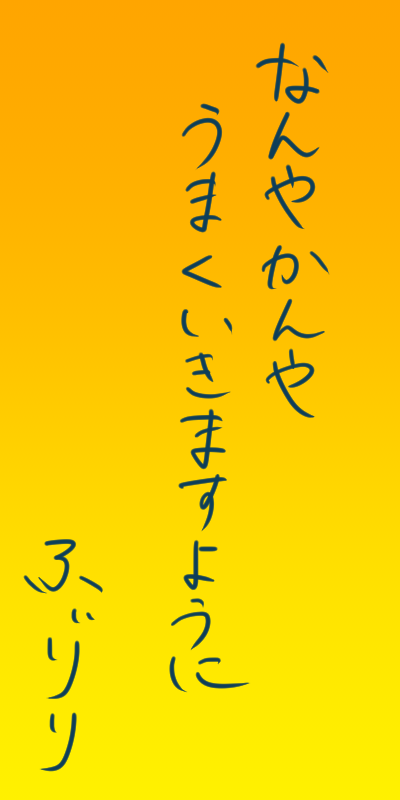 なんやかんや
うまくいきますように
ふ゛りり